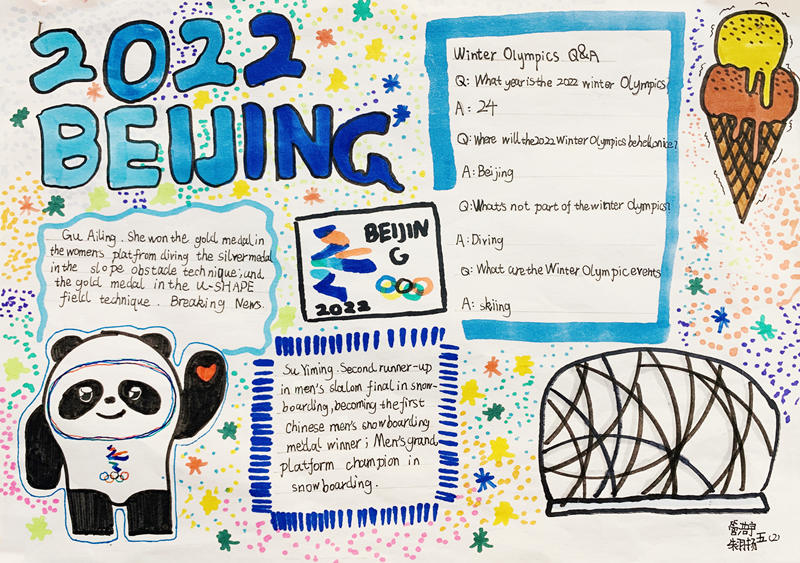 2022
BEIJING
Winter Olympics Q&A
Q: What year is the 2022 winter Olympics
A: 24
Q: Where will the 2022 Winter Olympics be held once?
A: Beijing
Q: What's not part of the winter Olympics?
A: Diving
Q: What are the Winter Olympic events
A: skiing
Gu Ailing. She won the gold medal in
the women's platfrom diving the silver medal
in the slope obstade technique; and
the gold medal in the U-SHAPE
field technique. Breaking News.
BEIJIN
G
2022
Su Yiming. Second runner-up
in men's slalom final in snow-
boarding, becoming the first
Chinese men's snowboarding
medal winner; Men's grand
platform champion in
snowboarding.
五(2)